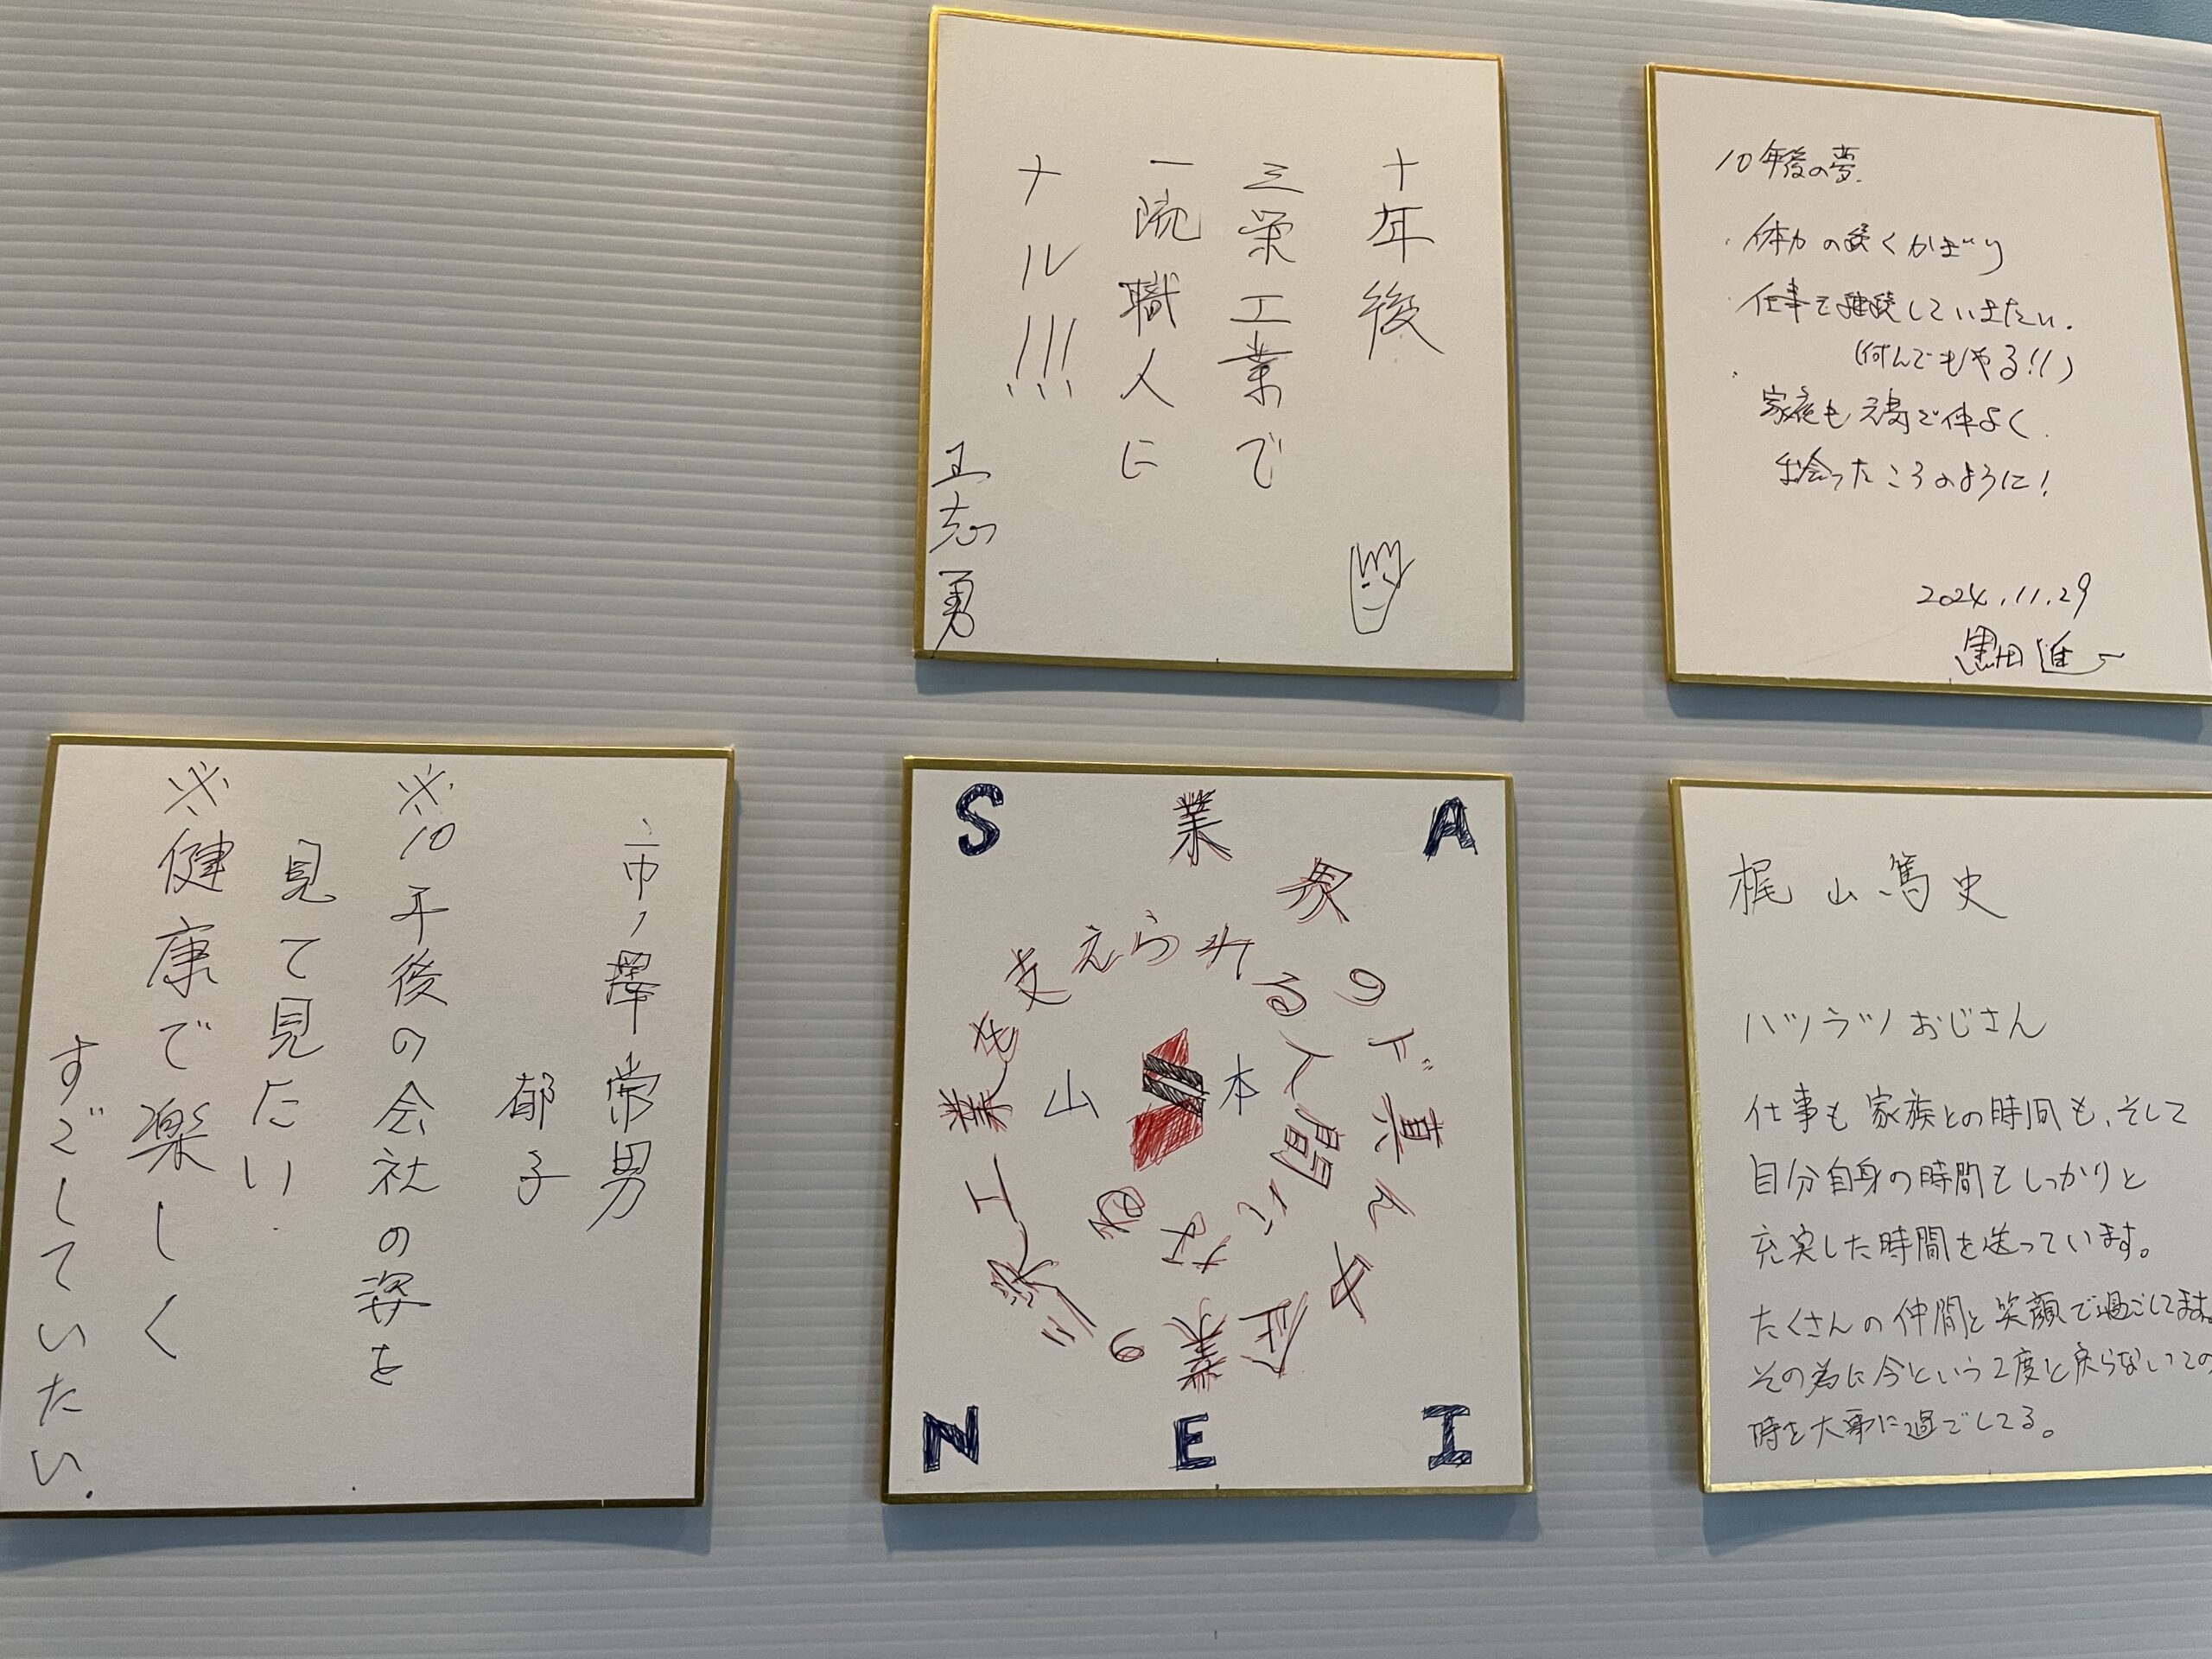 十年後
三栄工業で
一流職人に
ナル!!!
正志勇
10年後の夢.
・体力の続くかぎり
・仕事を継続していきたい.
(何んでもやる!!)
・家庭も元気で仲よく.
出会ったころのように!
2024.11.29
黒田進
市ノ澤常男
郁子
※10年後の会社の姿を
見て見たい.
※健康で楽しく
すごしていたい.
S A
業界のド真ん中
企業の三栄工業を支えられる人間になる
山 本
N E I
梶山篤史
ハツラツおじさん
仕事も家族との時間も、そして
自分自身の時間もしっかりと
充実した時間を送っています。
たくさんの仲間と笑顔で過ごしてます。
その為に今という2度と戻らないこの
時を大事に過ごしてる。